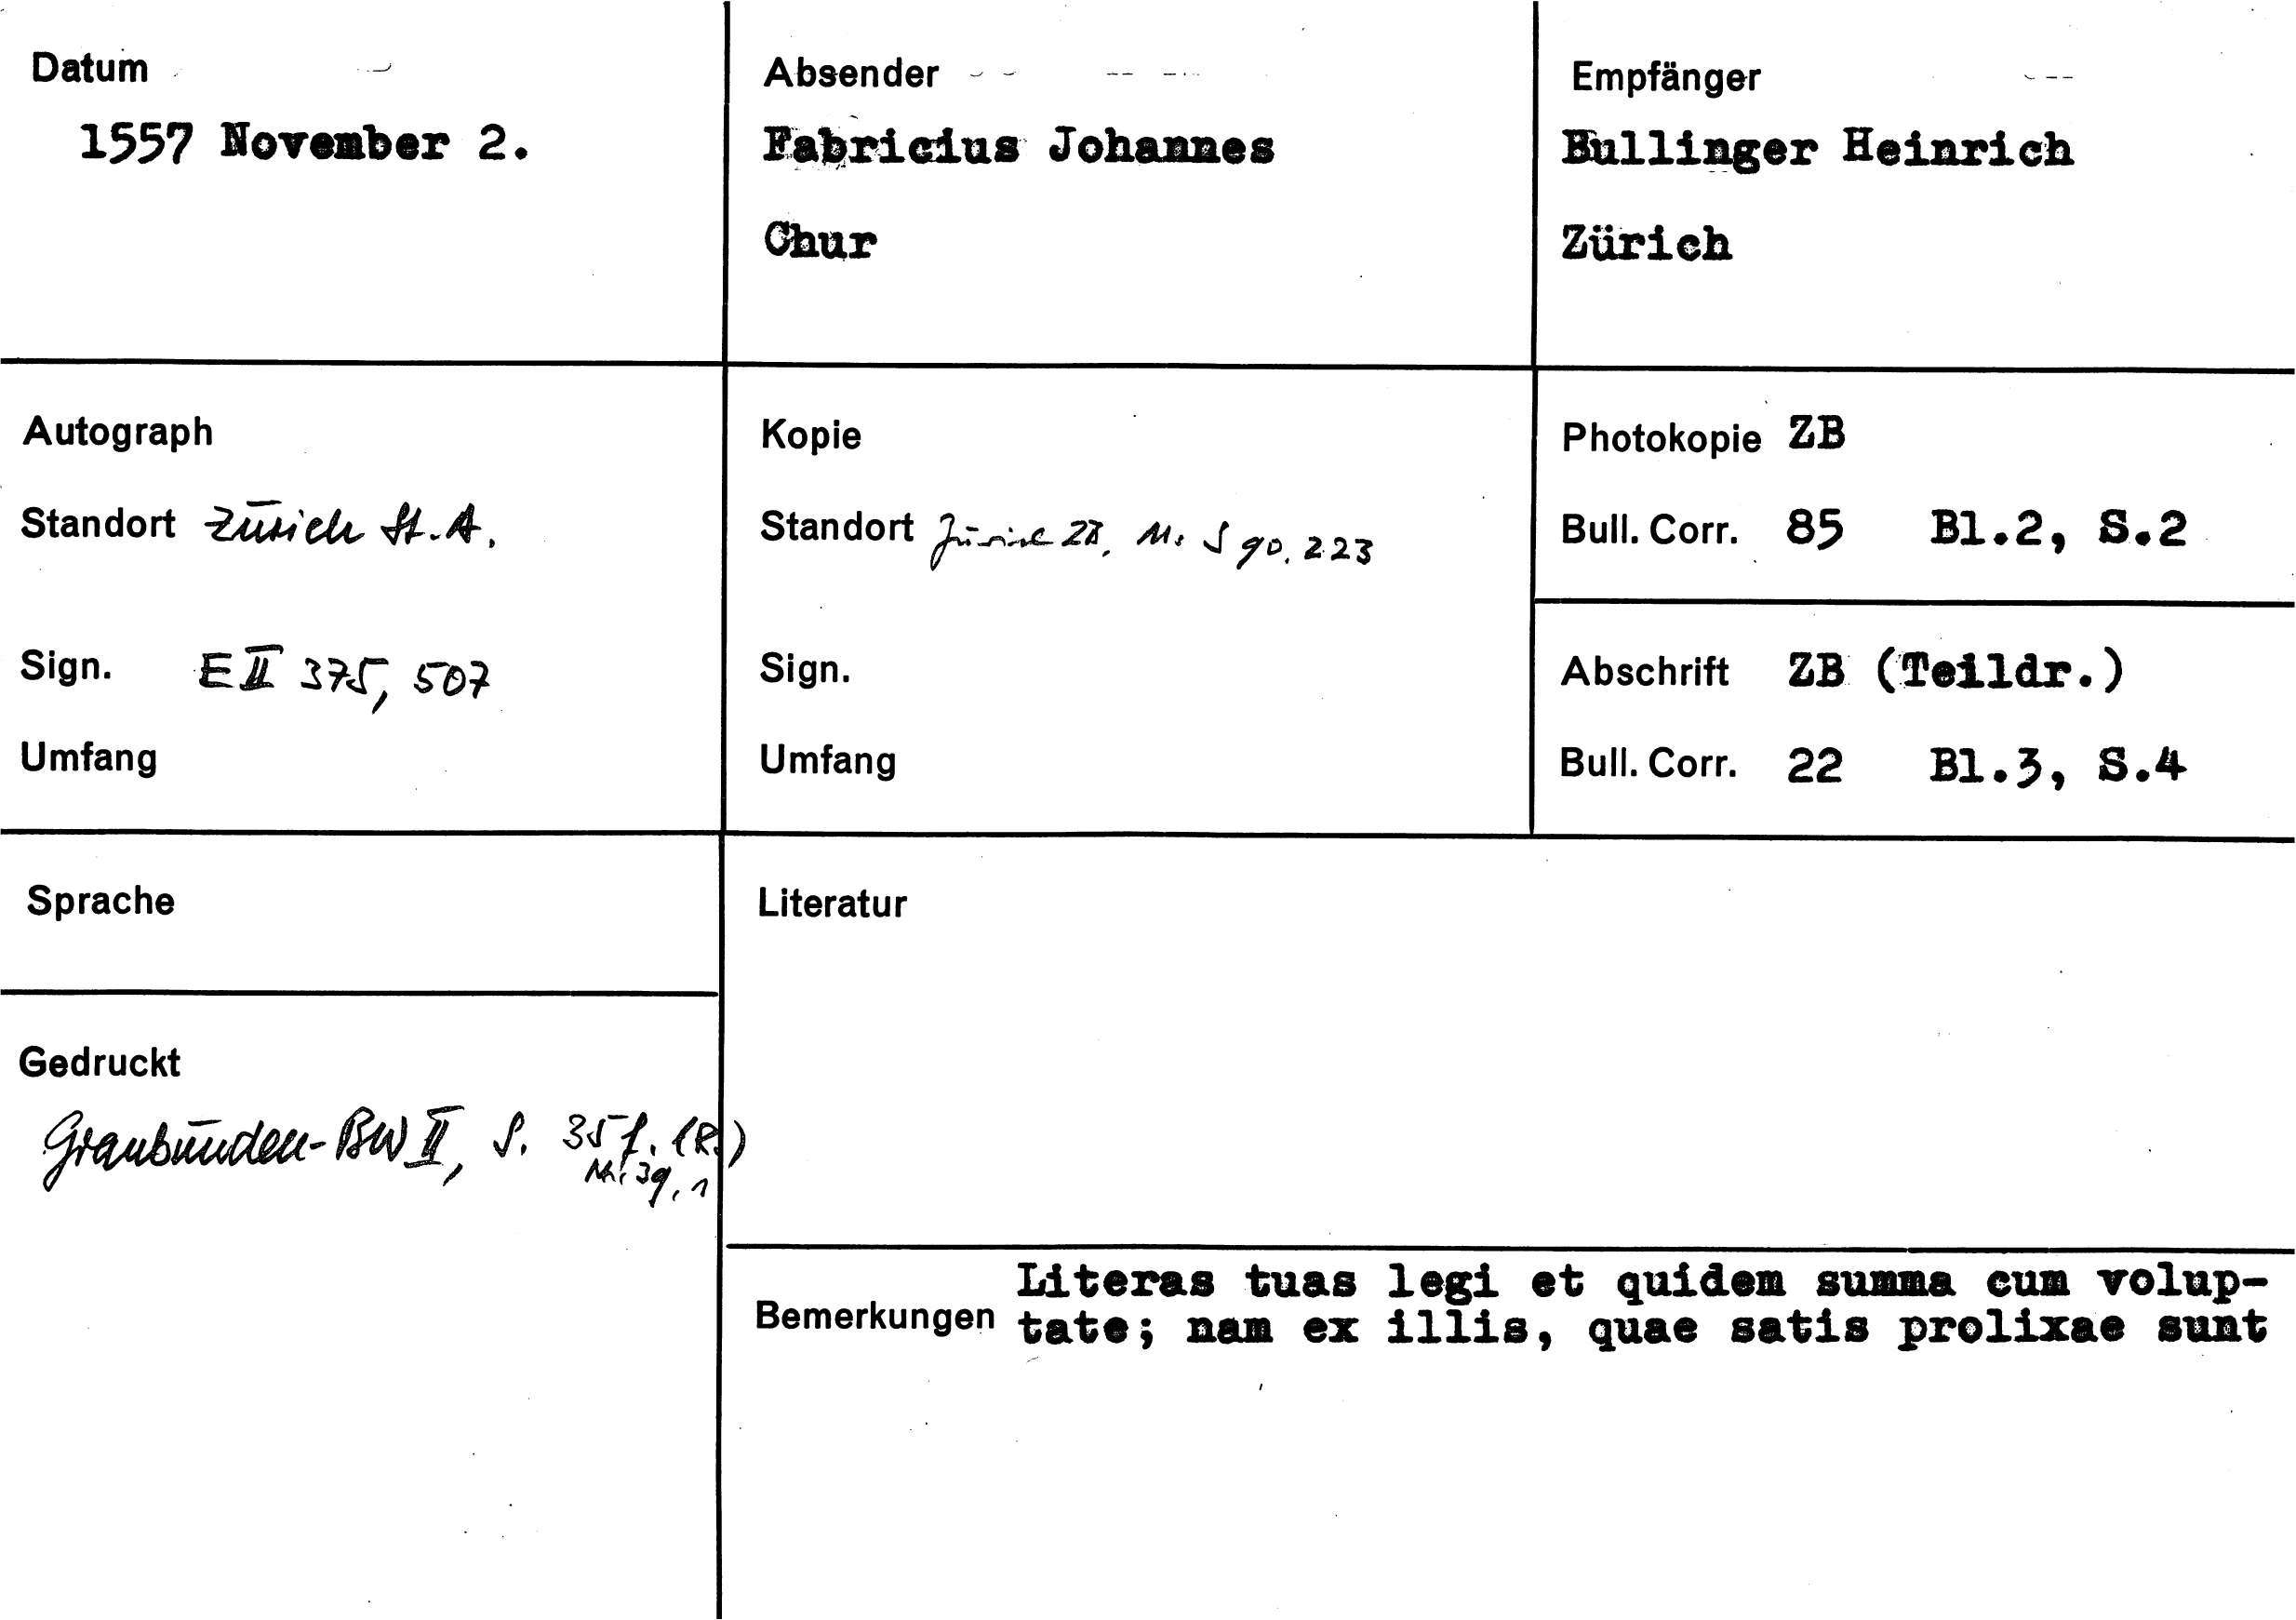 Datum
1557 November 2.
Absender
Fabricius Johannes
Chur
Empfänger
Bullinger Heinrich
Zürich
Autograph
Standort Zürich St.A.
Sign. E II 375, 507
Umfang
Kopie
Standort Zürich ZB, Ms S 90, 223
Sign.
Umfang
Photokopie ZB
Bull. Corr. 85 Bl.2, S.2
Abschrift ZB (Teildr.)
Bull. Corr. 22 Bl.3, S.4
Sprache
Gedruckt
Graubünden-BW II, S. 35 f. (R.)
Nr. 39,1
Literatur
Bemerkungen
Literas tuas legi et quidem summa cum volup-
tate; nam ex illis, quae satis prolixae sunt